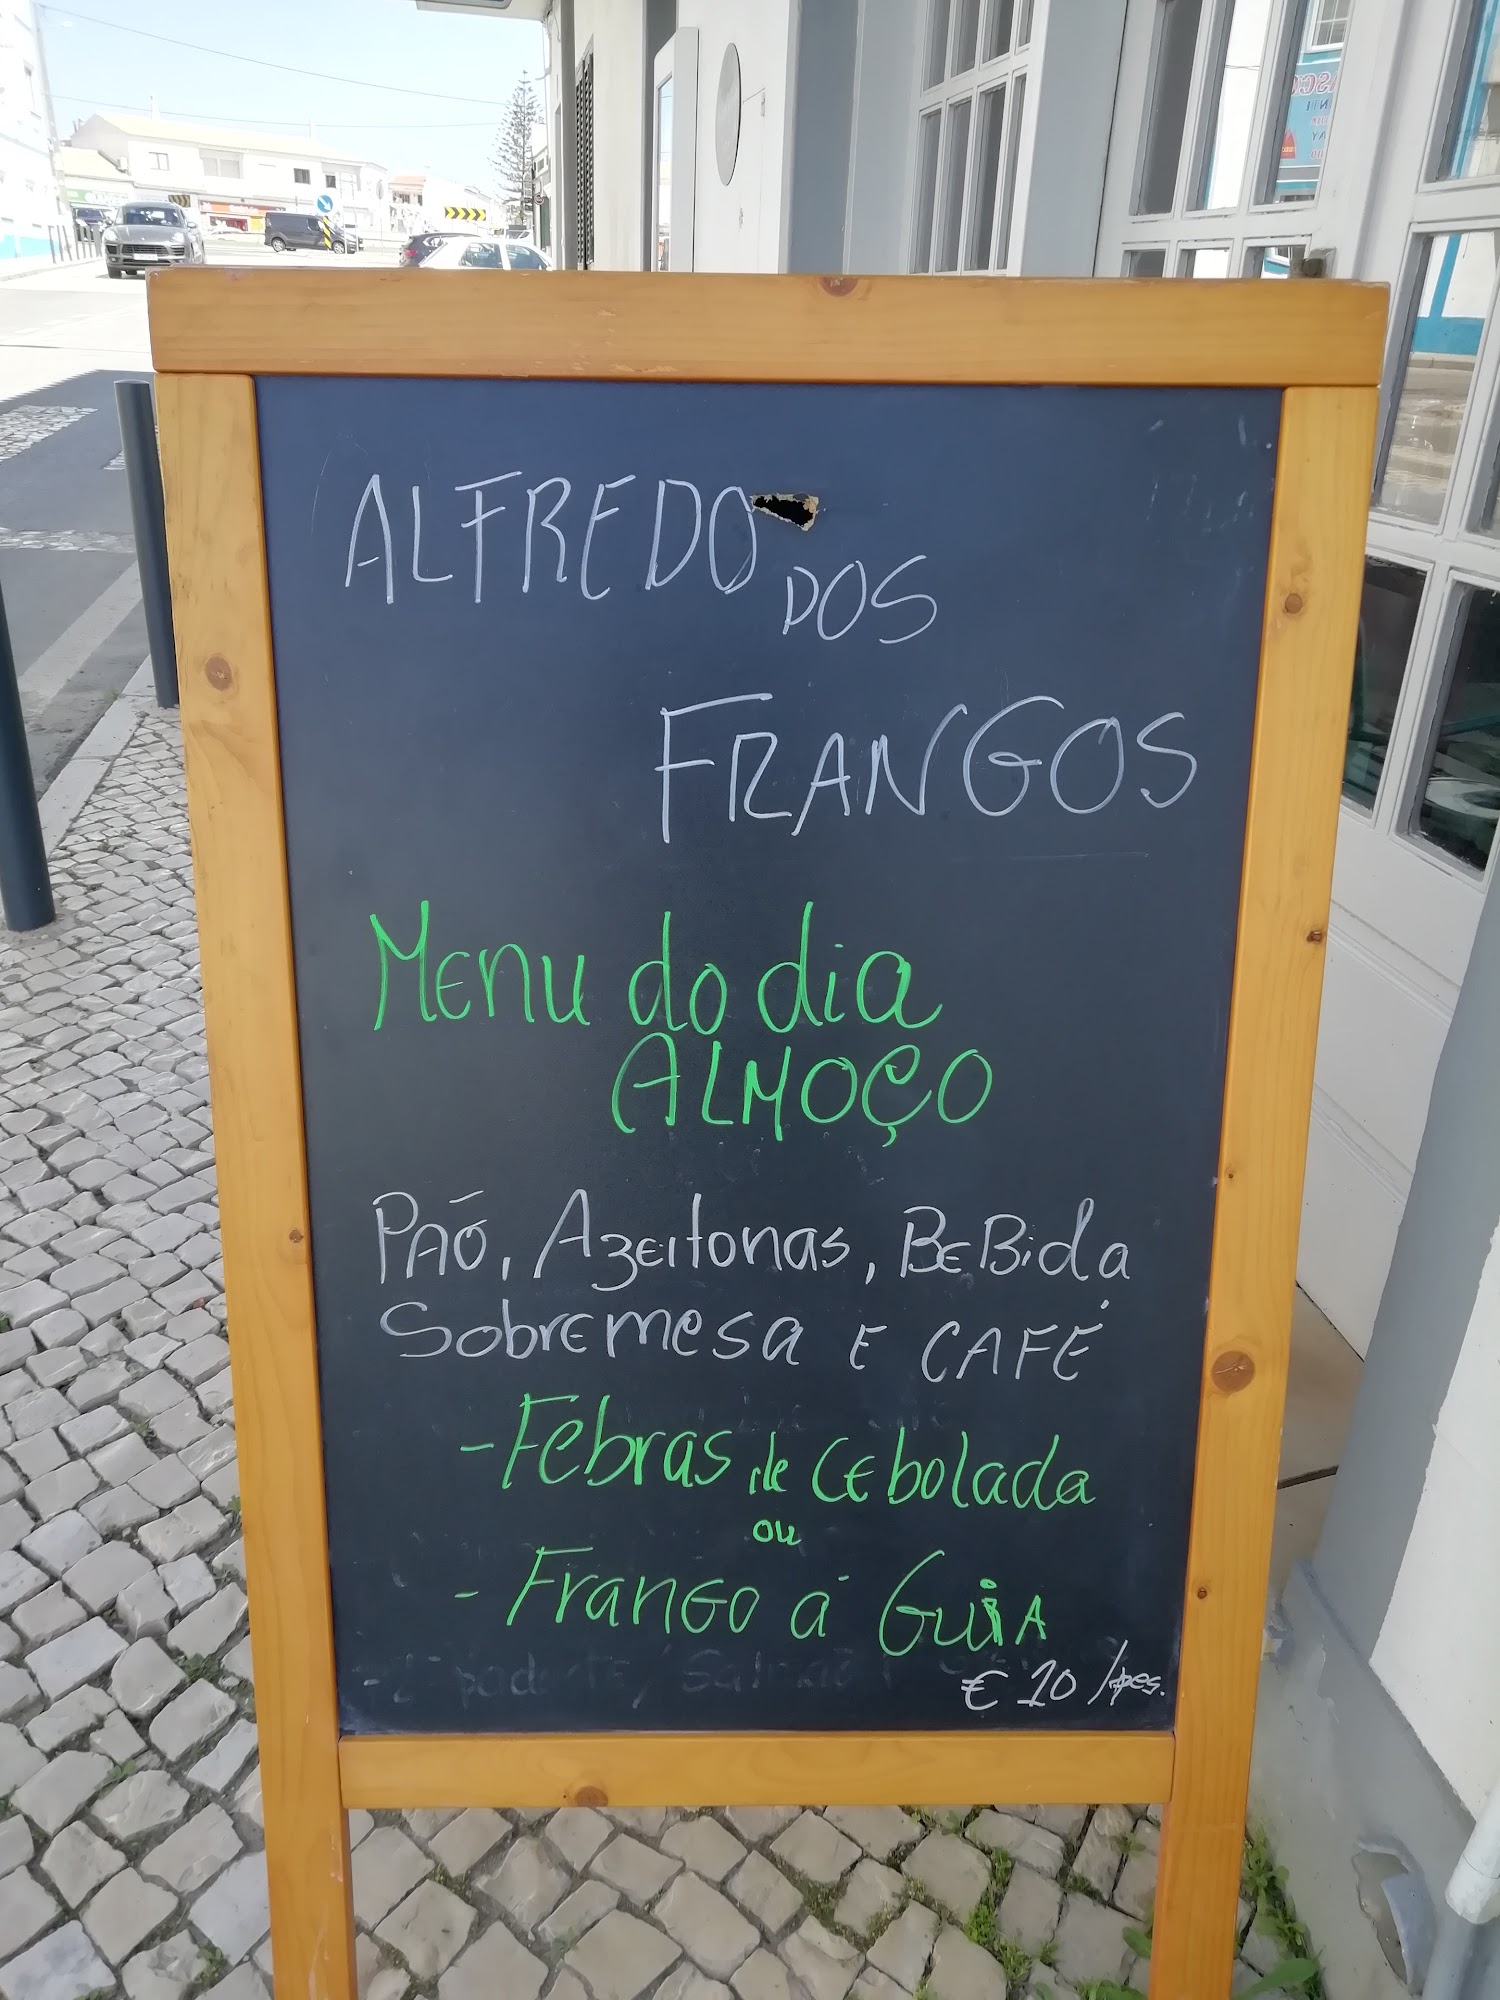 ALFREDO
DOS
FRANGOS
Menu do dia
ALMOÇO
PAÕ, AzEitonas, BEBida
SobrEmesa E CAFÉ
- Febras de CEbolada
ou
- FranGO á GuiA
€ 10 /pes.